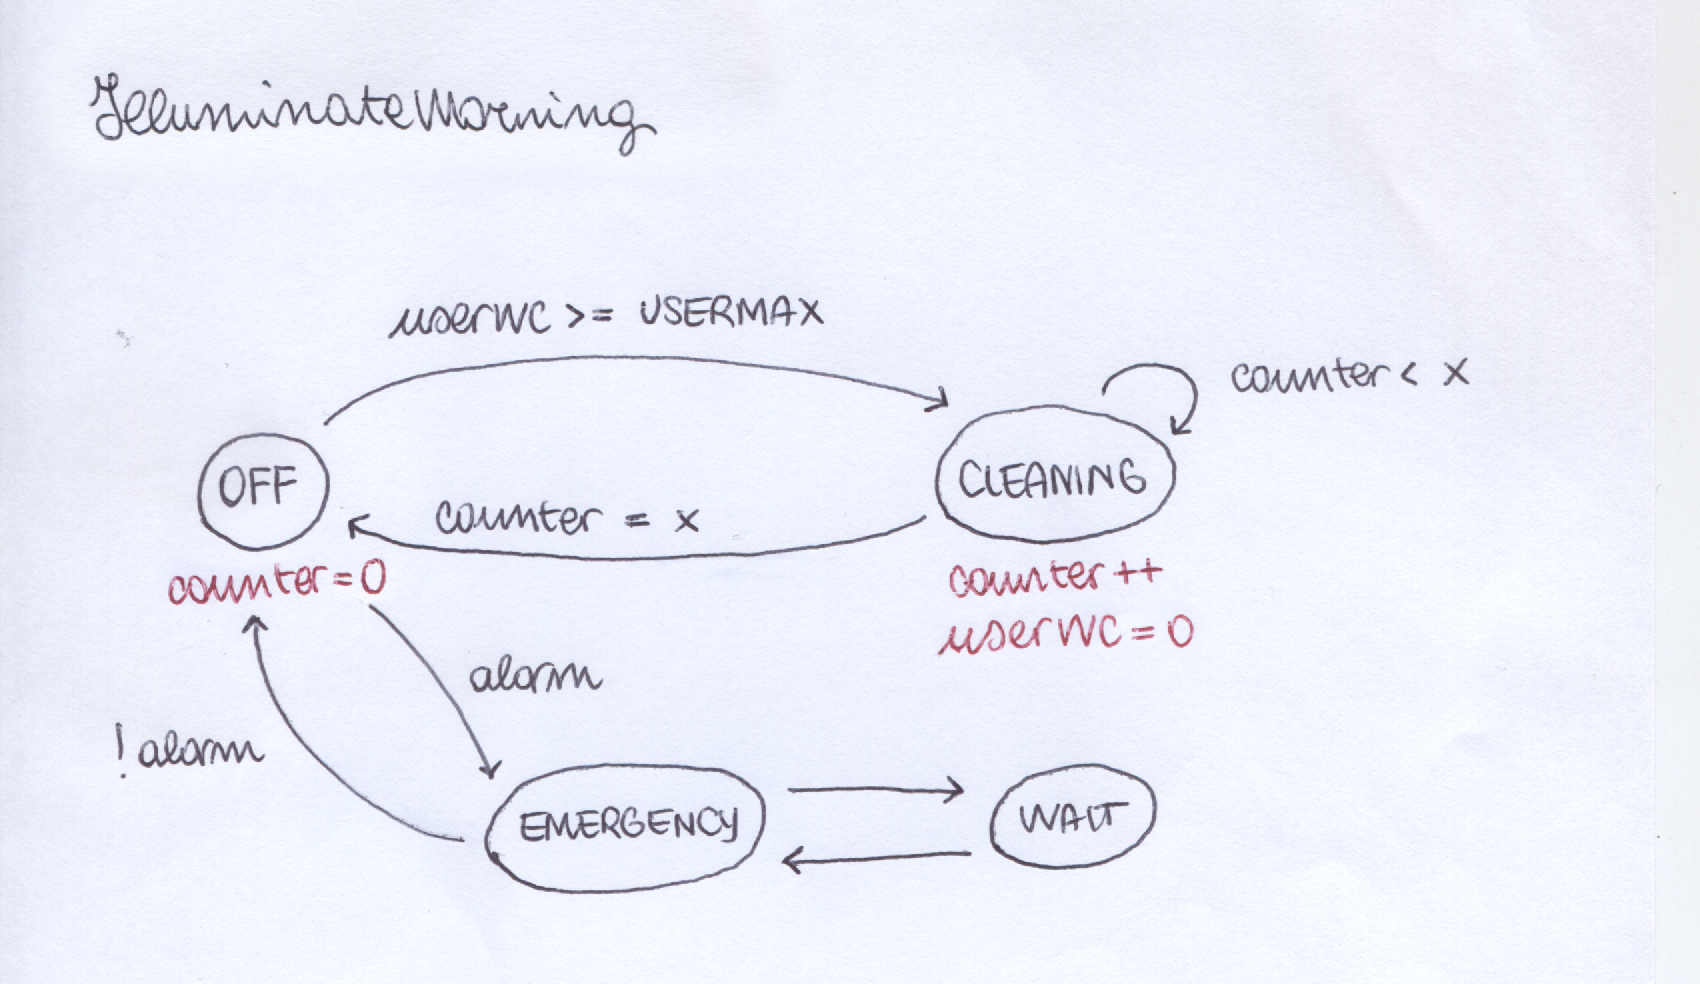 IlluminateMorning
userWC >= USERMAX
counter < x
OFF
CLEANING
counter = x
counter=0
counter ++
userWC = 0
alarm
! alarm
EMERGENCY
WAIT